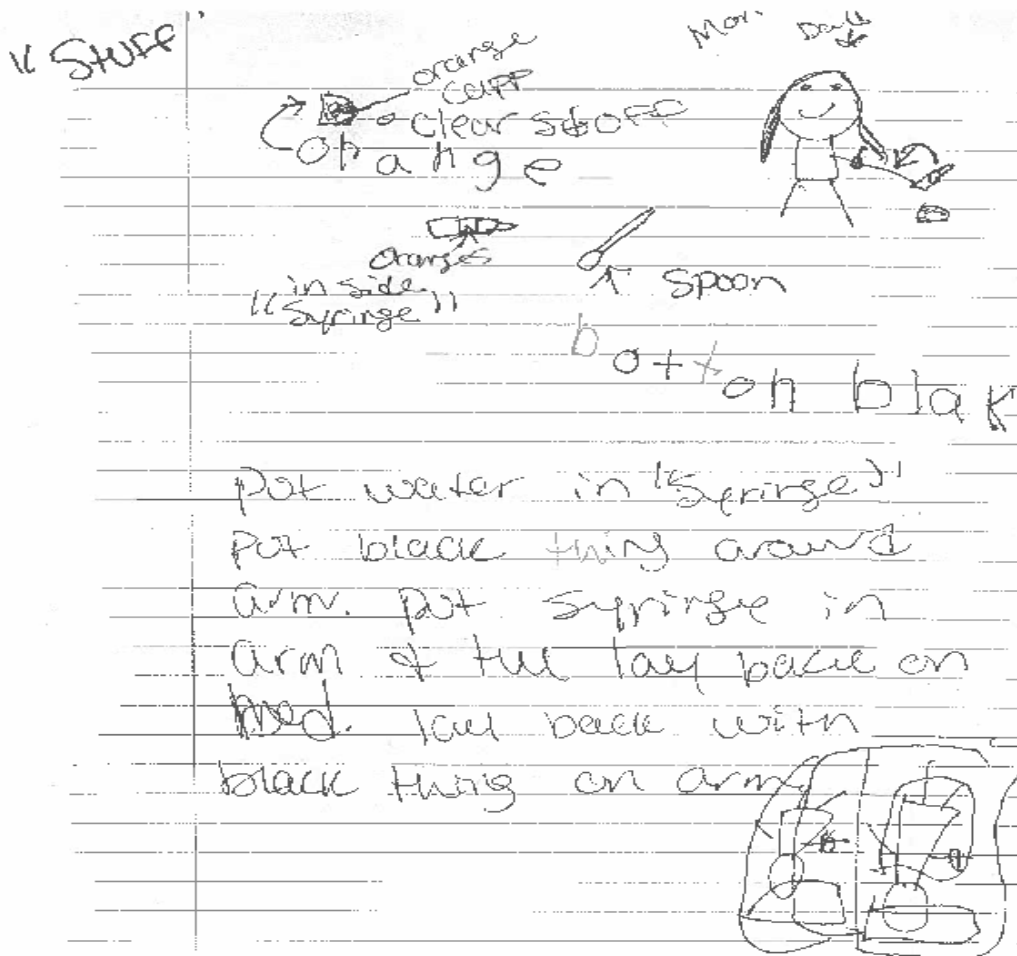 "Stuff"
Mom Dad
orange
capp
clear stuff
Orange
Oranges
in side
"Syringe"
spoon
bottoh blak
Put water in "Syringe"
put black thing around
arm. Put syringe in
arm & lay back on
bed. lay back with
black thing on arm